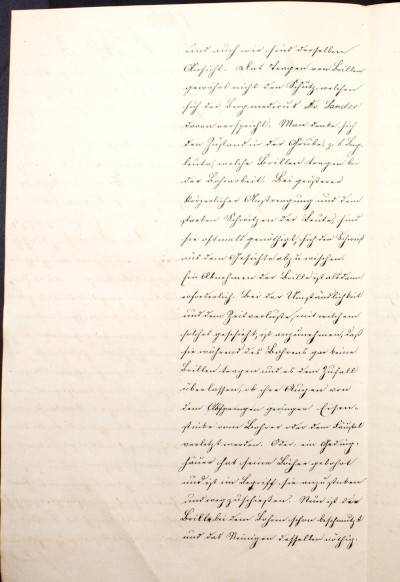 und auch wir sind derselben
Ansicht. Das Tragen von Brillen
gewährt nicht den Schutz, welchen
sich der Bergmedicus Dr. Sander
davon verspricht. Man denke sich
den Zustand in der Grube, z. B. Berg-
leute, welche Brillen tragen bei
der Bohrarbeit. Bei größerer
körperlicher Anstrengung und dem
starken Schwitzen der Leute, sind
sie oftmals genöthigt, sich den Schweiß
aus dem Gesichte abzuwischen.
Ein Abnehmen der Brille ist alsdann
erforderlich. Bei der Umständlichkeit
und dem Zeitverluste, mit welchem
solches geschieht, ist anzunehmen, daß
sie während des Bohrens gar keine
Brillen tragen und es dem Zufall
überlassen, ob ihre Augen von
dem Abspringen geringer Eisen-
stücke vom Bohrer oder dem Fäustel
verletzt werden. Oder: ein Geding-
häuer hat seine Löcher gebohrt
und ist im Begriff, sie anzustecken
und wegzuschießen. Nun ist die
Brille bei dem Bohren schon beschmutzt
und das Reinigen desselben nöthig.